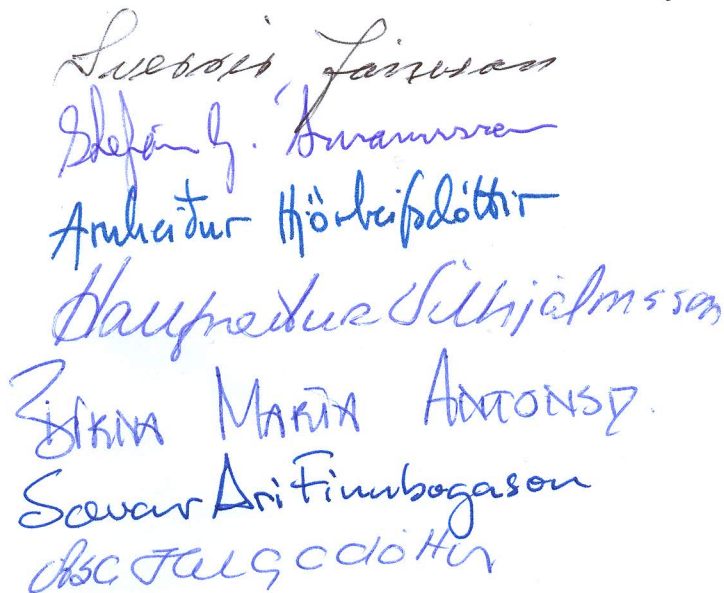 Sverrir
Stefán G.
Arnheiður Hjörleifsdóttir
Hallfreður Vilhjálmsson
Birna María Antonsd.
Sævar Ari Finnbogason
Ása Helgadóttir